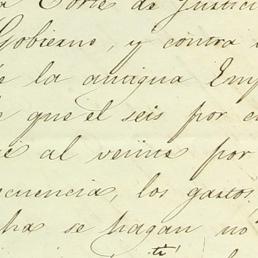 Corte de Justici
Gobierno, y contra
la antigua Emp
que el seis por ci
al veinte por
cuencia, los gastos
ha se hagan no